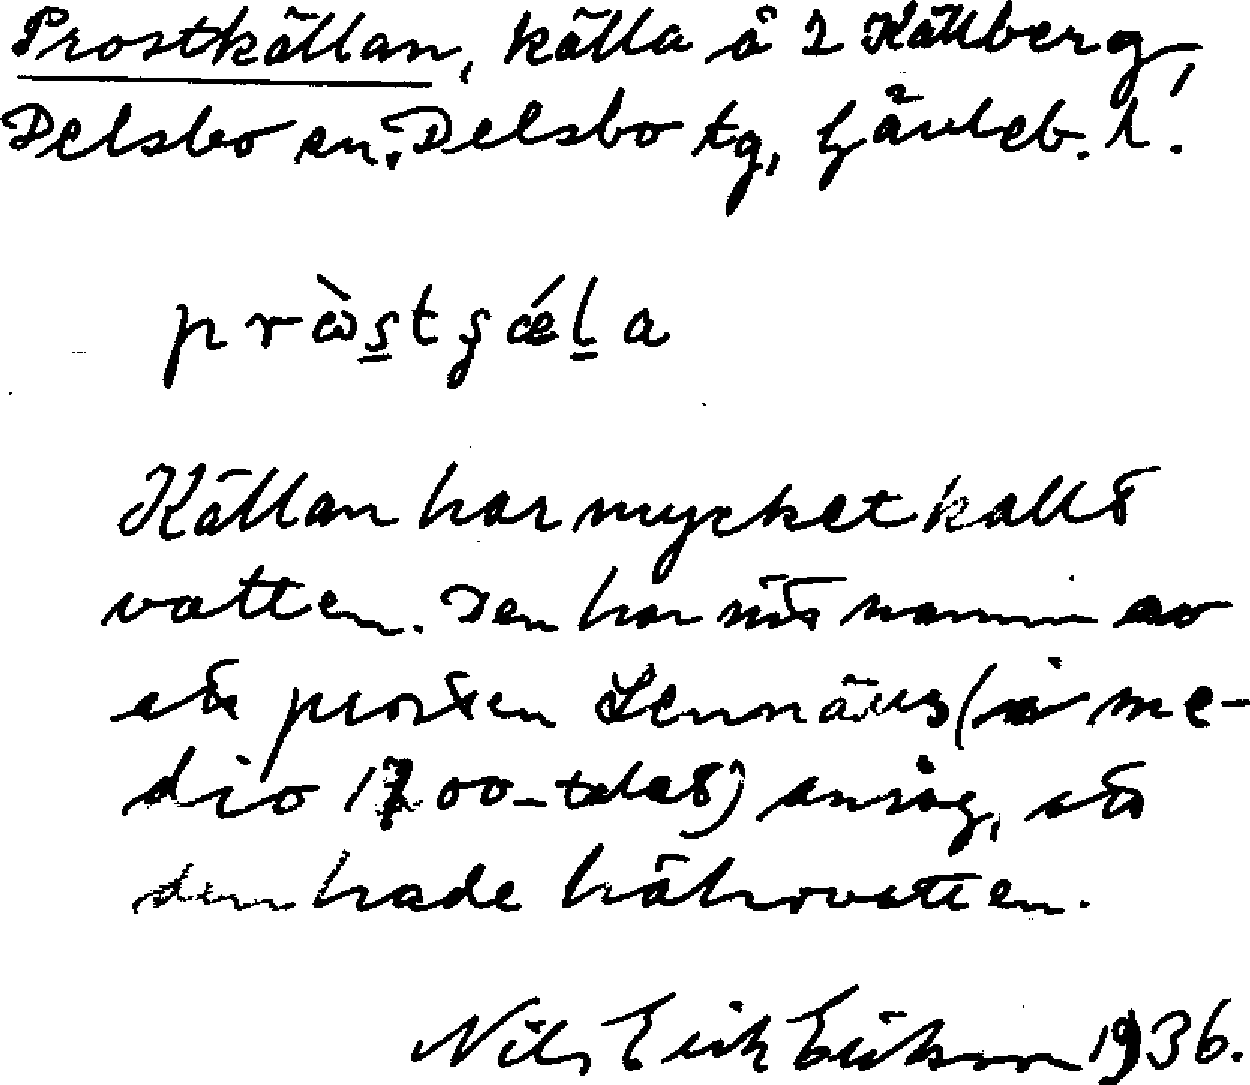 Prostkällan, källa å 2 Källberg,
Delsbo sn, Delsbo tg, Gävleb. l.
pròstgǽla
Källan har mycket kallt
vatten. Den har fått namn av
att prosten Lennäus (i me-
dio 1700-talet) ansåg, att
den hade hälsovatten.
Nils Erik Erikson 1936.